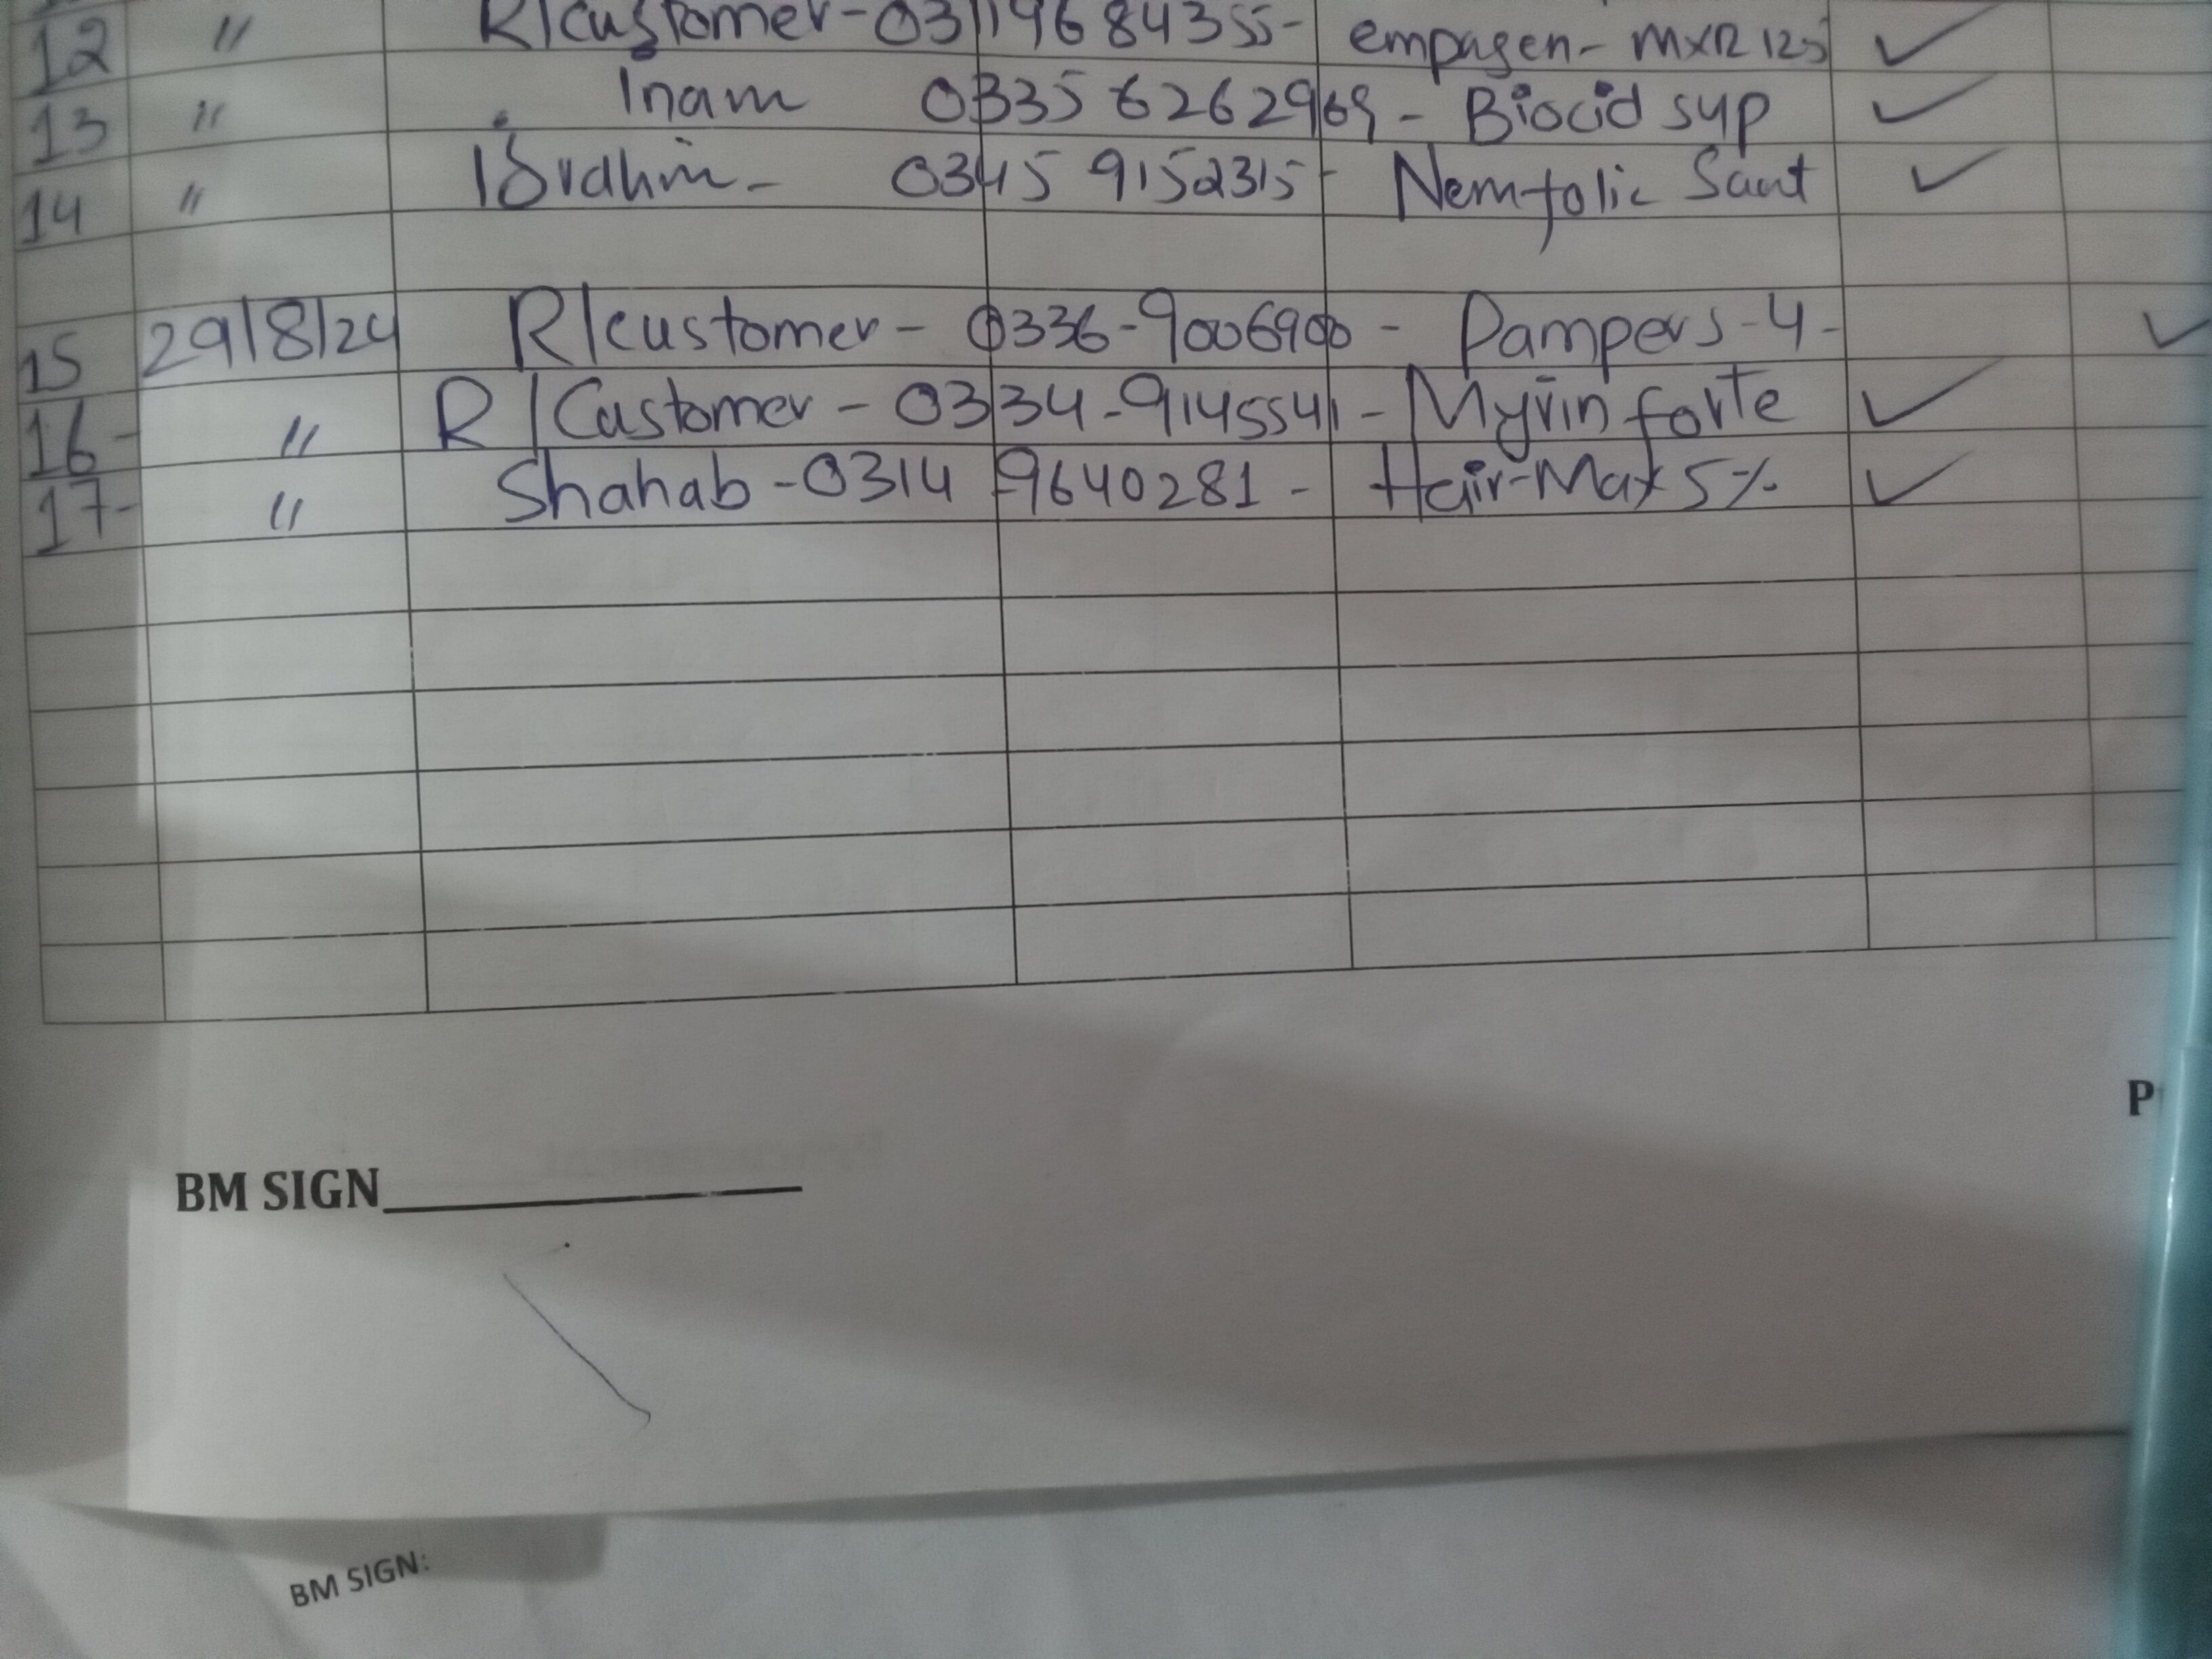 12 " R/customer-03119684355- empagen- MXR 125 ✓
13 " Inam 03356262969 - Biocid syp ✓
14 " Ibrahim - 0345 9152315- Nemfolic ✓
15 29/8/24 R/customer - 0336-9006900 - Pampers-4- ✓
16- " R/Castomer - 0334-9145541 - Myrin forte ✓
17- " Shahab -0314 9640281 - Hair-Max 5% ✓
BM SIGN
BM SIGN: